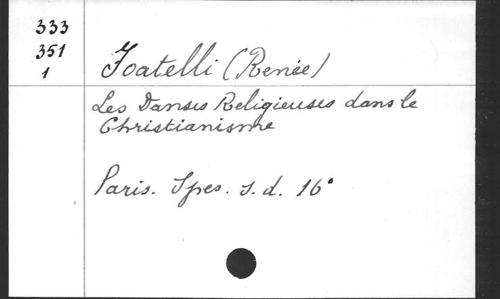 333
351
1
Foatelli (Renée)
Les Danses Religieuses dans le
Christianisme
Paris. Spes. s. d. 16°